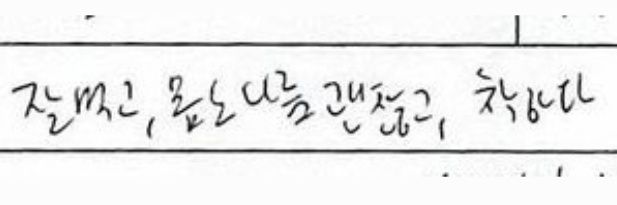 잘먹고, 몸도 나름 괜찮고, 착하다